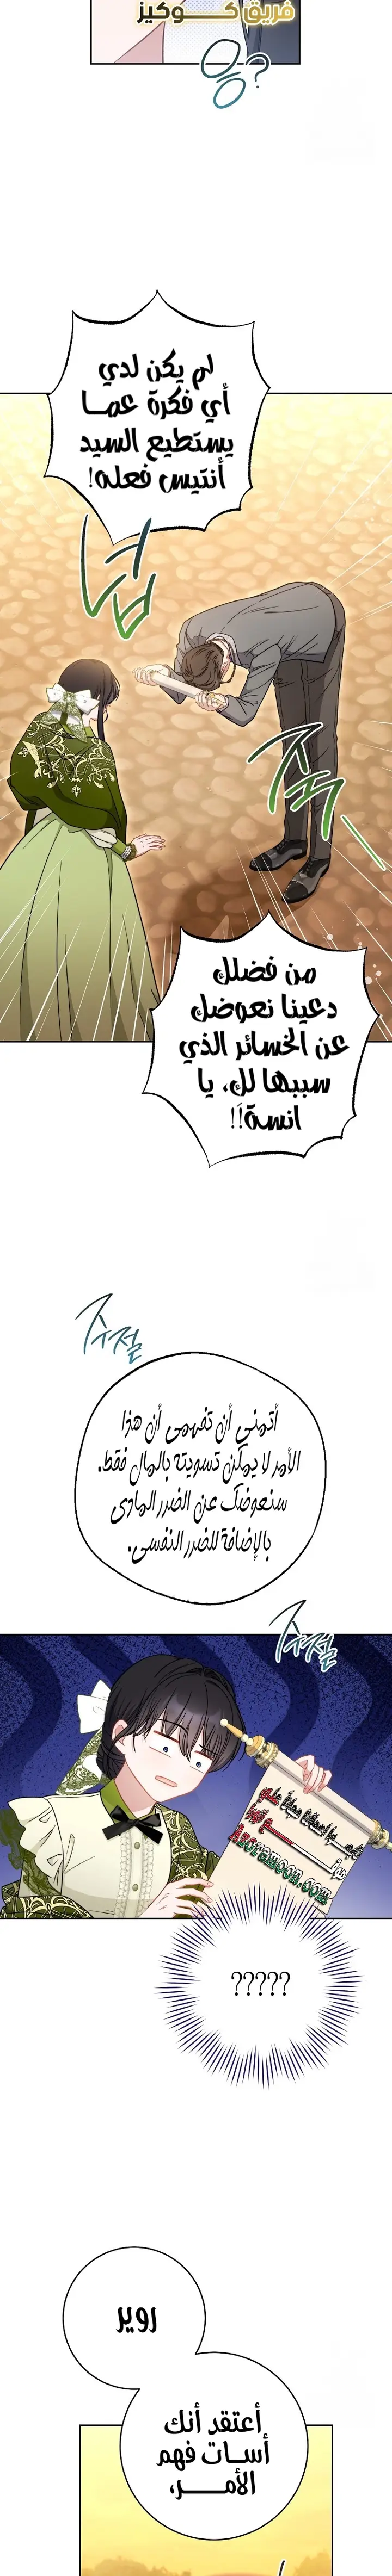 فريق كـــوكيز
응?
لم يكن لدي
أي فكرة عمـا
يستطيع السيد
أنتيس فعله!
من فضلك
دعينا نعوضك
عن الخسائر الذي
سببها لك، يا
انسة!!
수절
أتمنى أن تفهمي أن هذا
الأمر لا يمكن تسويته بالمال فقط.
سنعوضك عن الضرر المادي
بالإضافة للضرر النفسي.
수절
Azoramoon.com
?????
روير
أعتقد أنك
أسـات فهم
الأمـــر،